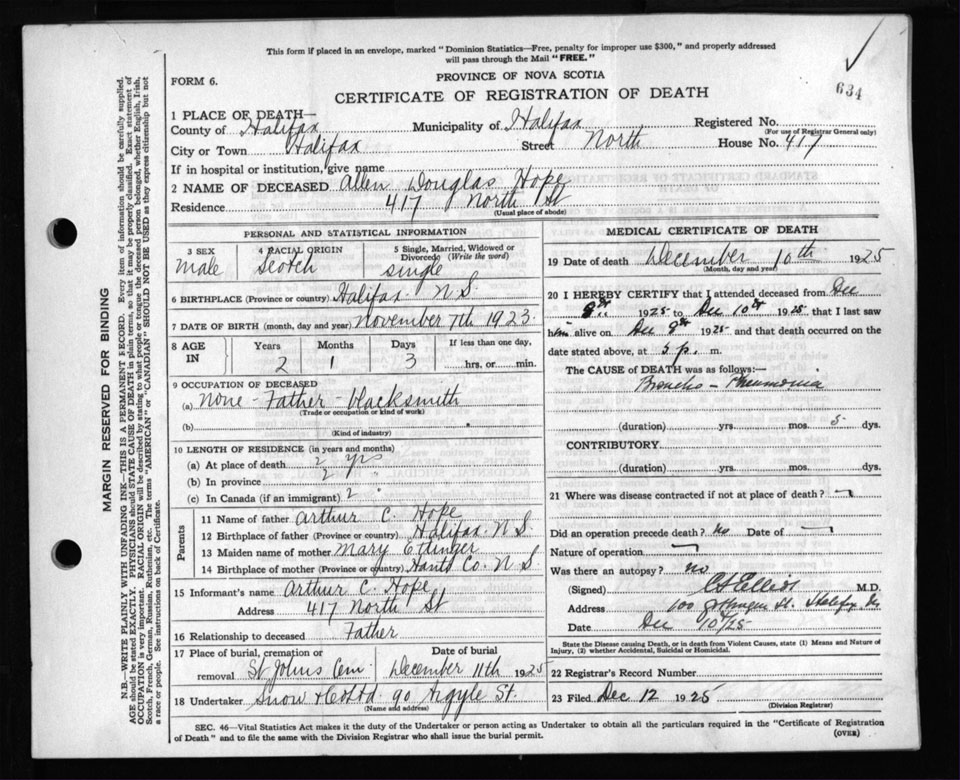 This form if placed in an envelope, marked "Dominion Statistics—Free, penalty for improper use $300," and properly addressed
will pass through the Mail "FREE."
634
FORM 6.
PROVINCE OF NOVA SCOTIA
CERTIFICATE OF REGISTRATION OF DEATH
1 PLACE OF DEATH—
County of Halifax Municipality of Halifax Registered No.
(For use of Registrar General only)
City or Town Halifax Street North House No. 417
If in hospital or institution, give name
2 NAME OF DECEASED Allen Douglas Hope
Residence 417 North St
(Usual place of abode)
PERSONAL AND STATISTICAL INFORMATION
3 SEX 4 RACIAL ORIGIN 5 Single, Married, Widowed or Divorced (Write the word)
Male Scotch Single
6 BIRTHPLACE (Province or country) Halifax N S.
7 DATE OF BIRTH (month, day and year) November 7th 1923.
8 AGE IN Years Months Days If less than one day,
2 1 3 hrs. or min.
9 OCCUPATION OF DECEASED
(a) None - Father - blacksmith
(Trade or occupation or kind of work)
(b)
(Kind of industry)
10 LENGTH OF RESIDENCE (in years and months)
(a) At place of death 2 yrs
(b) In province 2 "
(c) In Canada (if an immigrant) 2 "
Parents
11 Name of father Arthur C. Hope
12 Birthplace of father (Province or country) Halifax N S.
13 Maiden name of mother Mary Ettinger
14 Birthplace of mother (Province or country) Hants Co. N S.
15 Informant's name Arthur C. Hope
Address 417 North St
16 Relationship to deceased Father
17 Place of burial, cremation or removal Date of burial
St Johns Cem December 11th 1925
18 Undertaker Snow & Co Ltd 90 Argyle St.
(Name and address)
MEDICAL CERTIFICATE OF DEATH
19 Date of death December 10th 1925
(Month, day and year)
20 I HEREBY CERTIFY that I attended deceased from Dec
1925 to Dec 10th 1925 that I last saw
him alive on Dec 9th 1925 and that death occurred on
date stated above, at 5 p. m.
The CAUSE OF DEATH was as follows:—
Broncho - Pneumonia
(duration) yrs. mos. 5 dys.
CONTRIBUTORY
(duration) yrs. mos. dys.
21 Where was disease contracted if not at place of death?
Did an operation precede death? No Date of
Nature of operation
Was there an autopsy? no
(Signed) M.D.
Address St. Halifax NS
Date Dec 10/25
State the Disease causing Death, or in death from Violent Causes, state (1) Means and Nature of
Injury, (2) whether Accidental, Suicidal or Homicidal.
22 Registrar's Record Number
23 Filed Dec 12 1925
(Division Registrar)
SEC. 46—Vital Statistics Act makes it the duty of the Undertaker or person acting as Undertaker to obtain all the particulars required in the "Certificate of Registration
of Death" and to file the same with the Division Registrar who shall issue the burial permit.
(OVER)
MARGIN RESERVED FOR BINDING
N.B.—WRITE PLAINLY WITH UNFADING INK—THIS IS A PERMANENT RECORD. Every item of information should be carefully supplied.
AGE should be stated EXACTLY. PHYSICIANS should STATE CAUSE OF DEATH in plain terms, so that it may be properly classified. Exact statement of
OCCUPATION is very important. RACIAL ORIGIN will be described by stating to what people or tongue the deceased person belonged, whether English, Irish,
Scotch, French, German, Russian, Ruthenian, etc. The terms "AMERICAN" or "CANADIAN" SHOULD NOT BE USED as they express citizenship but not
a race or people. See instructions on back of Certificate.